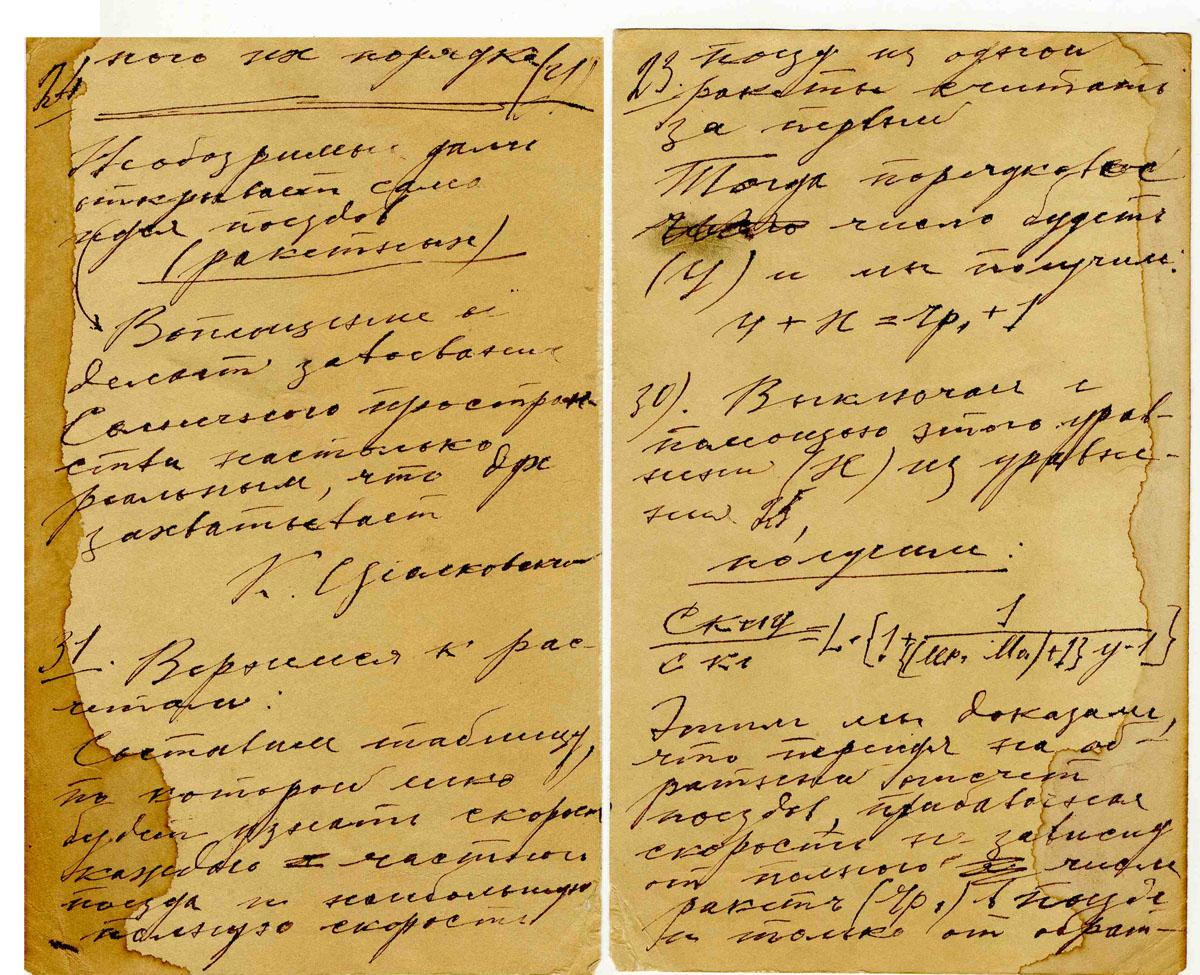 24
ного их порядка (y)
Необозримые дали
открывает сама
идея поездов
(ракетных)
Воплощение ее
делает завоевание
Солнечного простран-
ства настолько
реальным, что дух
захватывает
К. Циолковский
31. Вернемся к рас-
четам:
Составим таблицу,
по которой легко
будет узнать скорость
каждого частного
поезда и наибольшую
полную скорость
23. поезд из одной
ракеты считать
за первый
Тогда порядковое
число будет
(y) и мы получим:
y + n = чр₁ + 1
30). Выключаем с
помощью этого урав-
нения (n) из уравне-
ния 25,
получим:
= L · {1 + 1
Этим мы доказали,
что переходя на об-
ратный отсчет
поездов, прибавочная
скорость не зависит
от полного числа
ракет (чр₁) в поезде
и только от обрат-